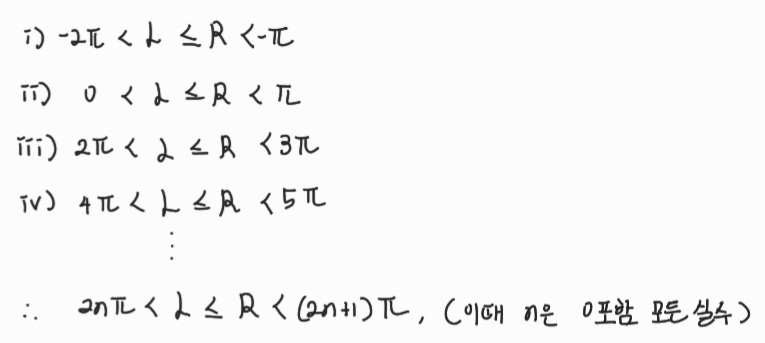 i) -2π < L ≤ R < -π
ii) 0 < L ≤ R < π
iii) 2π < L ≤ R < 3π
iv) 4π < L ≤ R < 5π
⋮
∴ 2nπ < L ≤ R < (2n+1)π, (이때 n은 0포함 모든 실수)